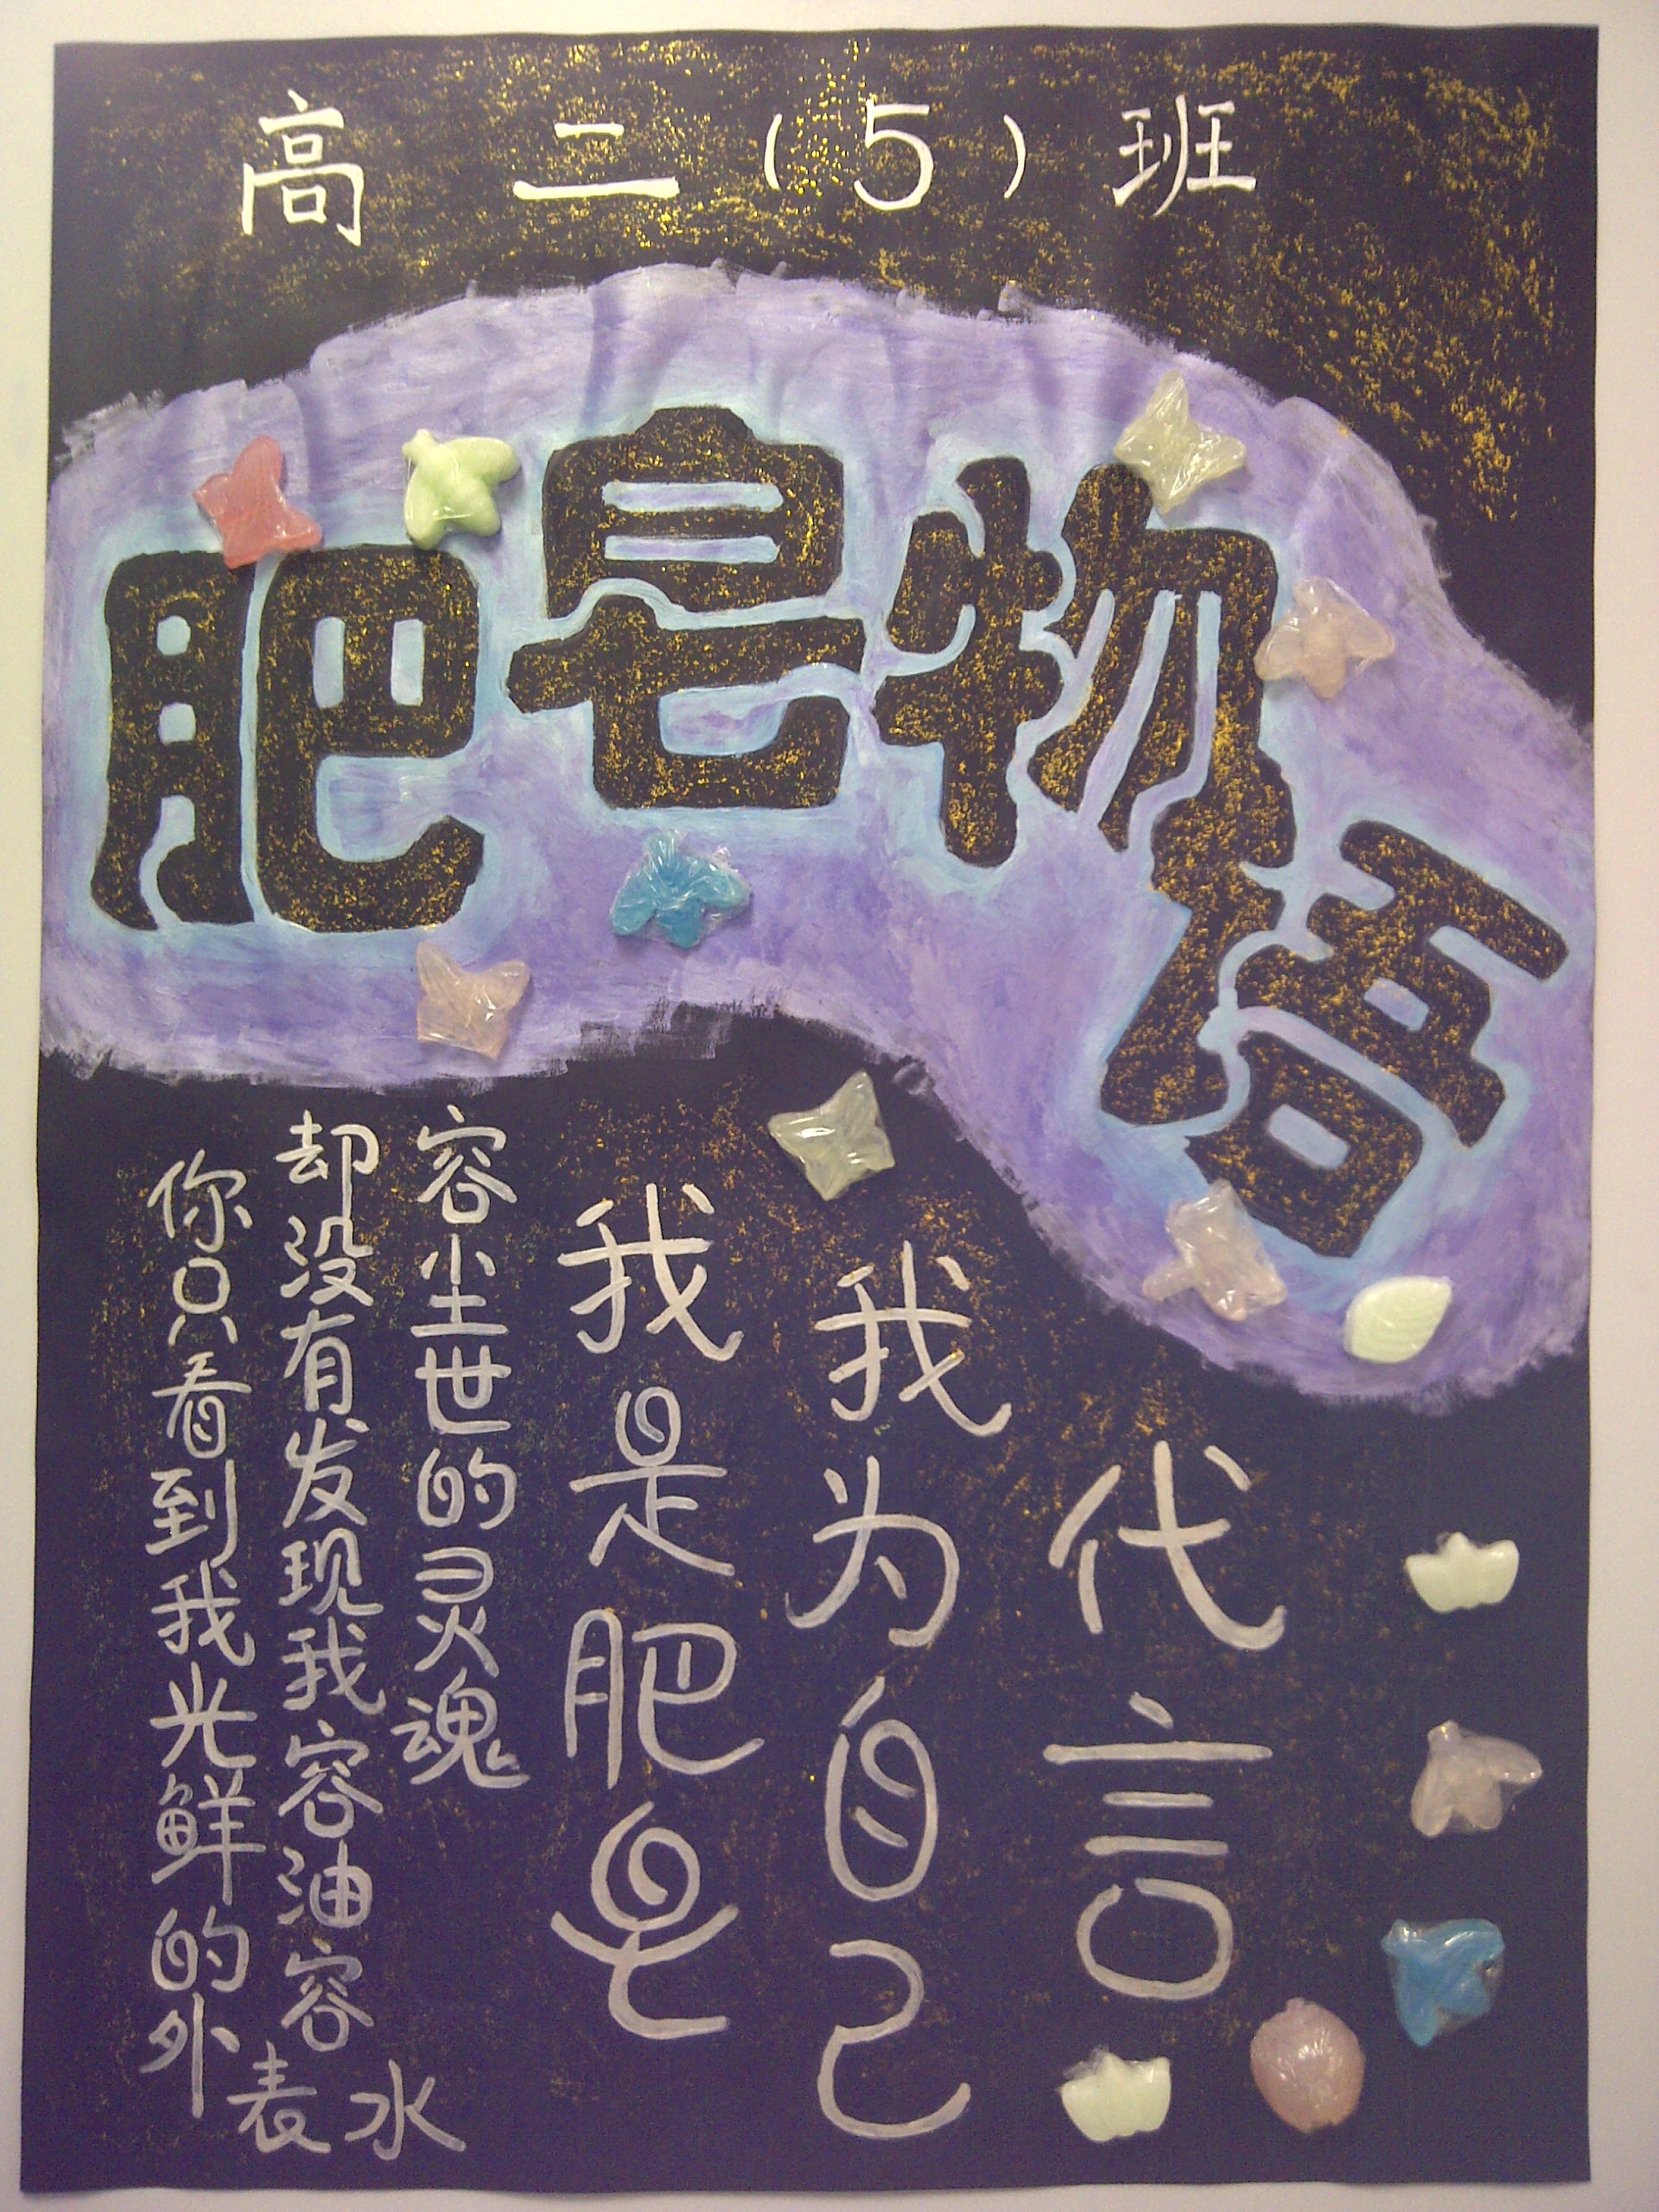 高二（5）班
肥皂物语
你只看到我光鲜的外表
却没有发现我容油容水
容尘世的灵魂
我是肥皂
我为自己
代言